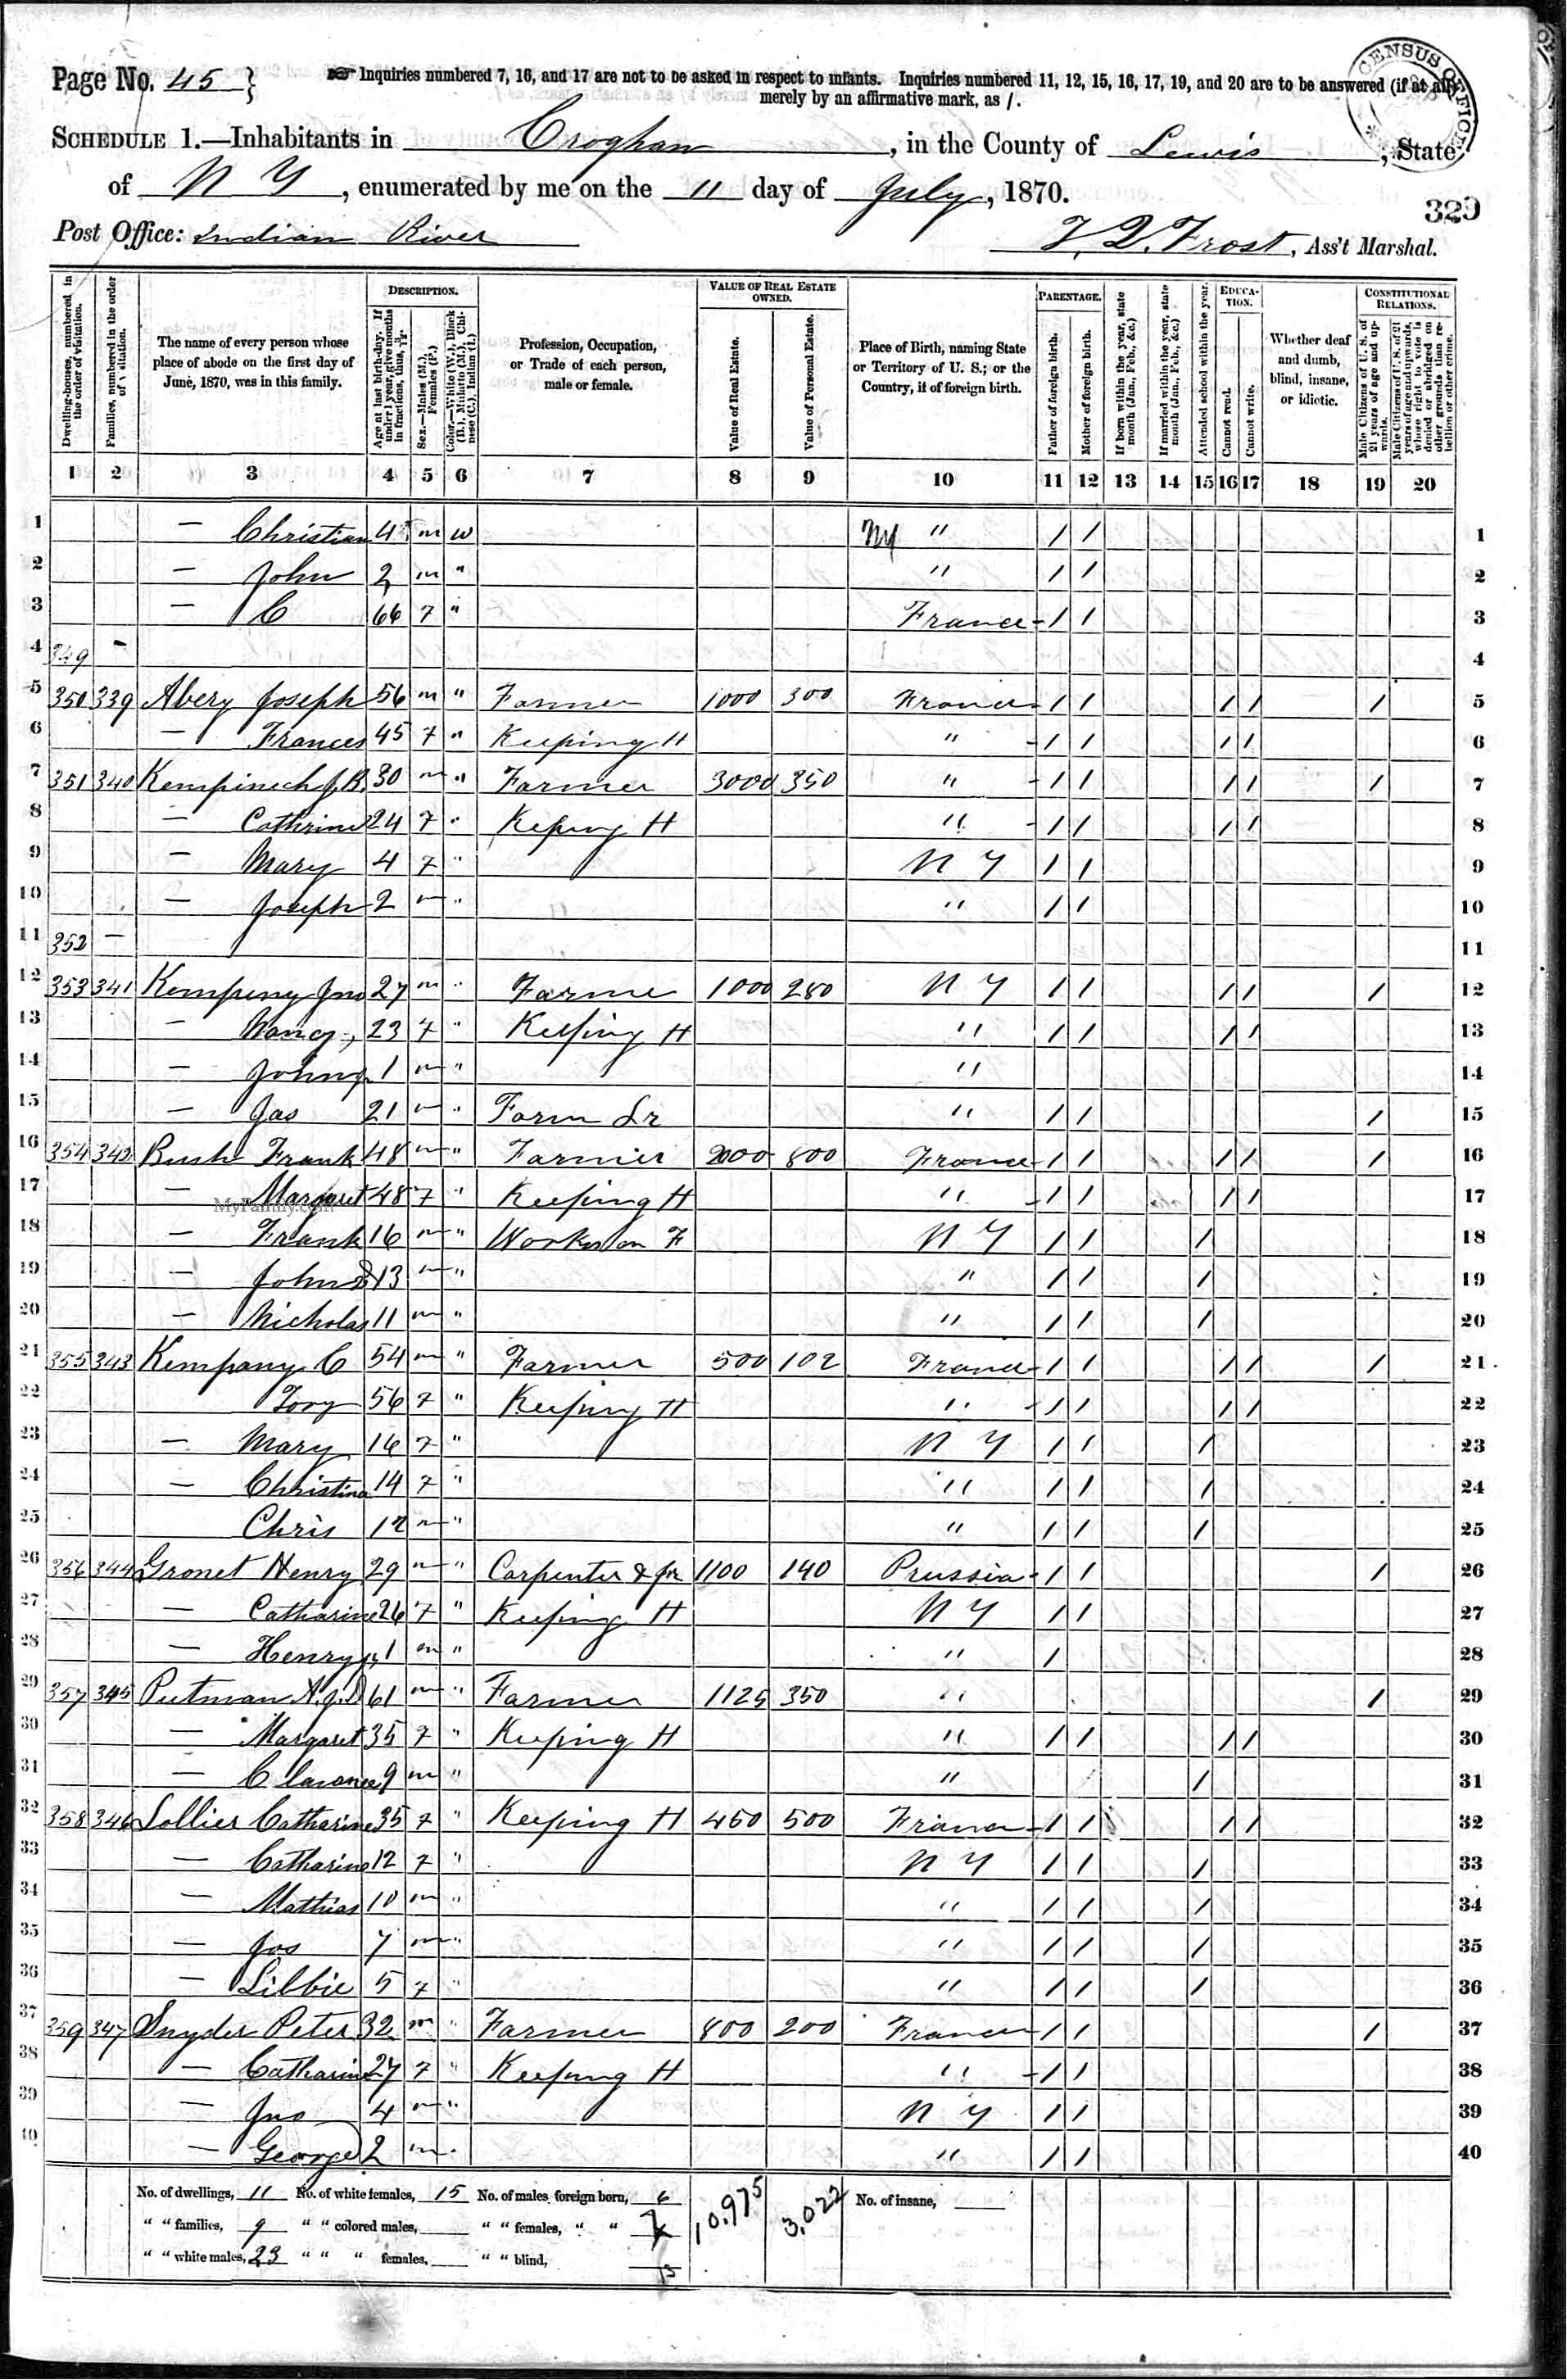 Page No. 45 }
Inquiries numbered 7, 16, and 17 are not to be asked in respect to infants. Inquiries numbered 11, 12, 15, 16, 17, 19, and 20 are to be answered (if at all)
merely by an affirmative mark, as /.
CENSUS OFFICE
SCHEDULE 1.—Inhabitants in Croghan, in the County of Lewis, State
of N Y, enumerated by me on the 11 day of July, 1870.
329
Post Office: Indian River
Frost, Ass't Marshal.
Dwelling-houses, numbered in the order of visitation.
Families, numbered in the order of visitation.
The name of every person whose place of abode on the first day of June, 1870, was in this family.
DESCRIPTION.
Age at last birth-day. If under 1 year, give months in fractions, thus, 3/12.
Sex.—Males (M.), Females (F.)
Color.—White (W.), Black (B.), Mulatto (M.), Chinese (C.), Indian (I.)
Profession, Occupation, or Trade of each person, male or female.
VALUE OF REAL ESTATE OWNED.
Value of Real Estate.
Value of Personal Estate.
Place of Birth, naming State or Territory of U. S.; or the Country, if of foreign birth.
PARENTAGE.
Father of foreign birth.
Mother of foreign birth.
If born within the year, state month (Jan., Feb., &c.)
If married within the year, state month (Jan., Feb., &c.)
Attended school within the year.
EDUCATION.
Cannot read.
Cannot write.
Whether deaf and dumb, blind, insane, or idiotic.
CONSTITUTIONAL RELATIONS.
Male Citizens of U. S. of 21 years of age and upwards.
Male Citizens of U. S. of 21 years of age and upwards, whose right to vote is denied or abridged on other grounds than rebellion or other crime.
1 2 3 4 5 6 7 8 9 10 11 12 13 14 15 16 17 18 19 20
1 — Christian 4 m w NY " / / 1
2 — John 2 m " " / / 2
3 — C 66 F " France / / 3
4 349 - 4
5 350 339 Abery Joseph 56 m " Farmer 1000 300 France / / / / / 5
6 — Frances 45 F " Keeping H " / / / / 6
7 351 340 Kempinech J B. 30 m " Farmer 3000 350 " / / / / / 7
8 — Cathrine 24 F " Keping H " / / / / 8
9 — Mary 4 F " N Y / / 9
10 — Joseph 2 m " " / / 10
11 352 — 11
12 353 341 Kempeny Jno 27 m " Farme 1000 280 N Y / / / / / 12
13 — Nancy 23 F " Keeping H " / / / / 13
14 — 1 m " " 14
15 — Jas 21 m " Farm Lr " / / / 15
16 354 342 Bush Frank 48 m " Farmer 2000 800 France / / / / / 16
17 — Margaret 48 F " Keeping H " / / / / 17
MyFamily.com
18 — Frank 16 m " Works on F N Y / / / 18
19 — John 13 m " " / / / 19
20 — Nicholas 11 m " " / / / 20
21 355 343 Kempany C 54 m " Farmer 500 102 France / / / / / 21
22 56 F " Keeping H " / / / / 22
23 — Mary 16 F " N Y / / / 23
24 — Christina 14 F " " / / / 24
25 Chris 12 m " " / / / 25
26 356 344 Gronet Henry 29 m " Carpenter & 1100 140 Prussia / / / 26
27 — Catharine 26 F " Keeping H N Y / / 27
28 — Henry 1 m " " / 28
29 357 345 Putman 61 m " Farmer 1125 350 " / 29
30 — Margaret 35 F " Keeping H " / / / / 30
31 — Clarance 9 m " " / 31
32 358 346 Lollier Catharine 35 F " Keeping H 450 500 France / / / / 32
33 — Catharine 12 F " N Y / / / 33
34 — Mathias 10 m " " / / / 34
35 — Jos 7 m " " / / / 35
36 — Libbie 5 F " " / / / 36
37 359 347 Snyder Peter 32 m " Farmer 800 200 France / / / 37
38 — Catharine 27 F " Keeping H " / / 38
39 — Jno 4 m " N Y / / 39
40 — George 2 m " " / / 40
No. of dwellings, 11 No. of white females, 15 No. of males foreign born, 6 10,975 3,022 No. of insane,
" " families, 9 " " colored males, " " females, " " 7
" " white males, 23 " " " females, " " blind,
13